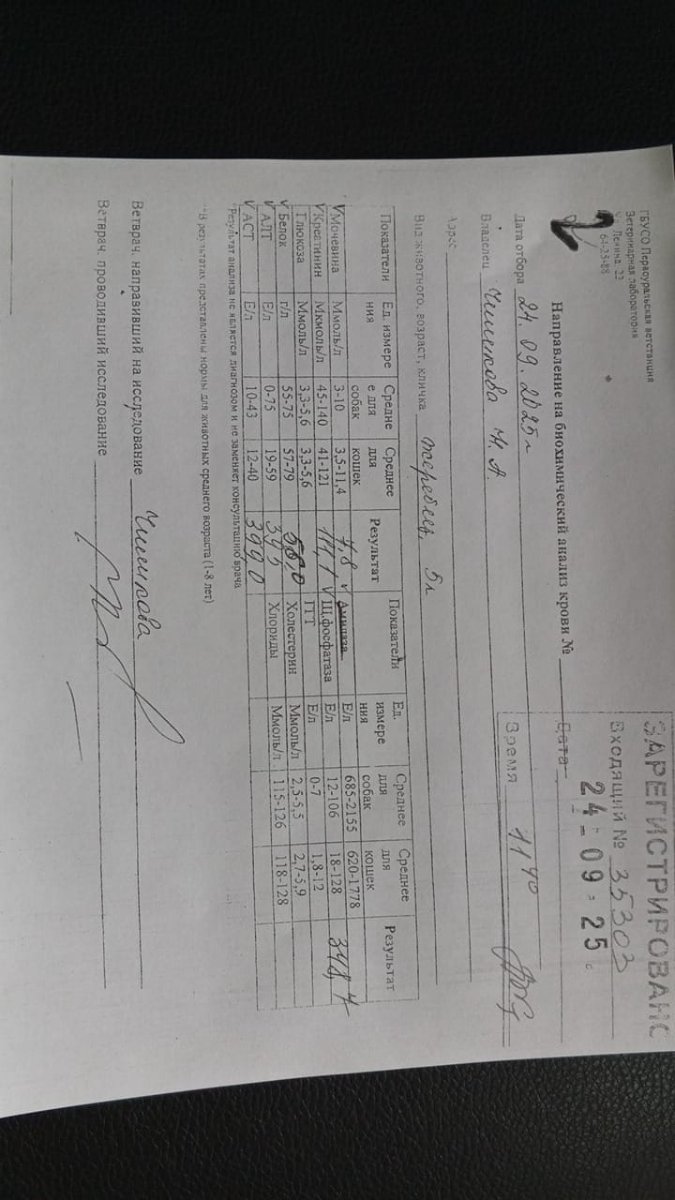 ГБУСО Первоуральская ветстанция
Ветеринарная лаборатория
Ленина 22
64-23-88
ЗАРЕГИСТРИРОВАНО
Входящий № 35303
24-09-25
Дата
Время 11 40
Направление на биохимический анализ крови №
Дата отбора 24.09.2025г
Владелец Чишкова
Адрес
Вид животного, возраст, кличка жеребец 5л
Показатели Ед. измере ния Средне е для собак Среднее для кошек Результат Показатели Ед. измере ния Среднее для собак Среднее для кошек Результат
√ Мочевина Ммоль/л 3-10 3,5-11,4 4,8 √ Амилаза Е/л 685-2155 620-1778
√ Креатинин Мкмоль/л 45-140 41-121 111,1 √ Щ.фосфатаза Е/л 12-106 18-128 348,4
Глюкоза Ммоль/л 3,3-5,6 3,3-5,6 ГГТ Е/л 0-7 1,8-12
√ Белок г/л 55-75 57-79 58,0 Холестерин Ммоль/л 2,5-5,5 2,7-5,9
√ АЛТ Е/л 0-75 19-59 Хлориды Ммоль/л 115-126 118-128
√ АСТ Е/л 10-43 12-40 399,0
*Результат анализа не является диагнозом и не заменяет консультацию врача
**В результатах представлены нормы для животных среднего возраста (1-8 лет)
Ветврач, направивший на исследование Чишкова
Ветврач, проводивший исследование